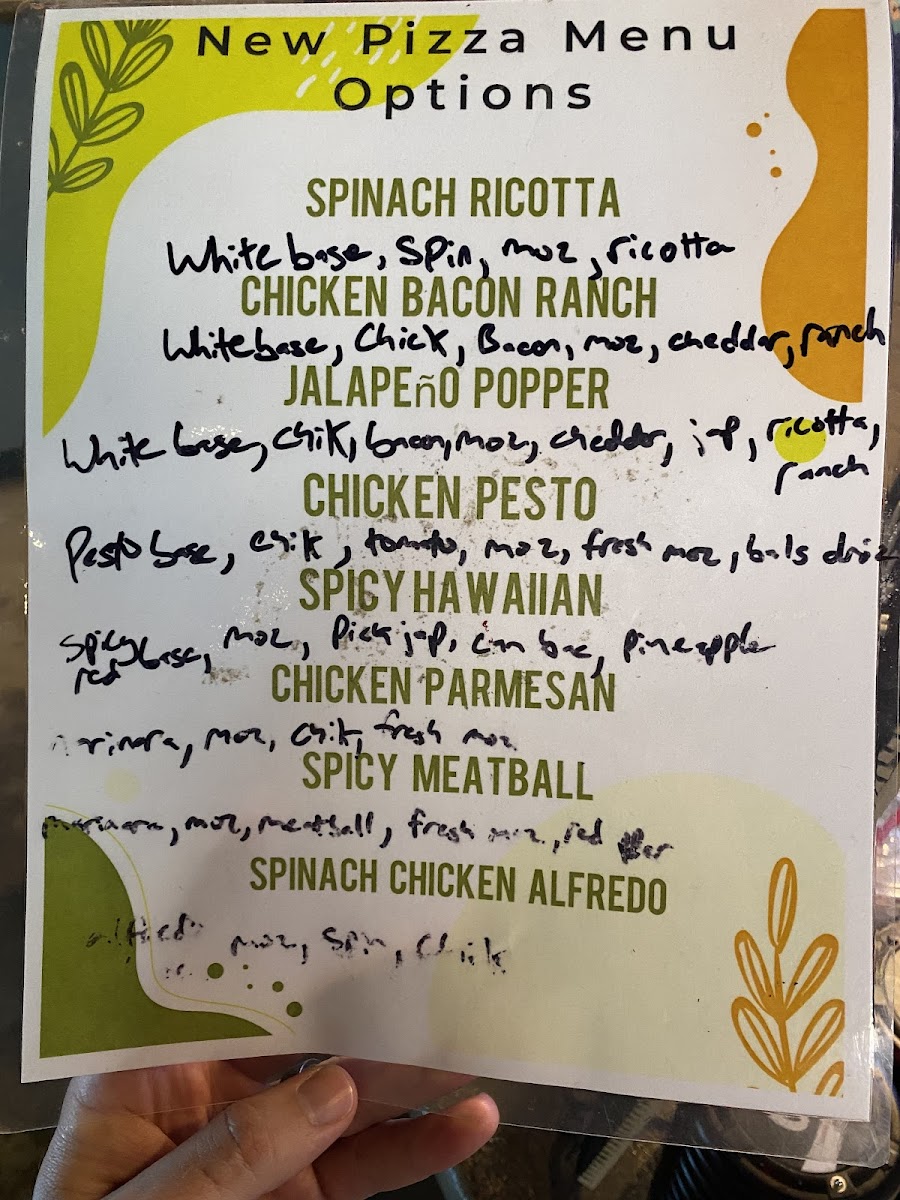 New Pizza Menu
Options
SPINACH RICOTTA
White base, Spin, moz, ricotta
CHICKEN BACON RANCH
White base, Chick, Bacon, moz, cheddar, ranch
JALAPEñO POPPER
White base, chik, bacon, moz, cheddar, jap, ricotta,
ranch
CHICKEN PESTO
Pesto base, chik, tomato, moz, fresh moz, bals
SPICY HAWAIIAN
Spicy base, moz, Pick jap, can bac, pineapple
red
CHICKEN PARMESAN
moz, chik, fresh moz
SPICY MEATBALL
marinara, moz, meatball, fresh moz, red
SPINACH CHICKEN ALFREDO
moz, Spin, Chik